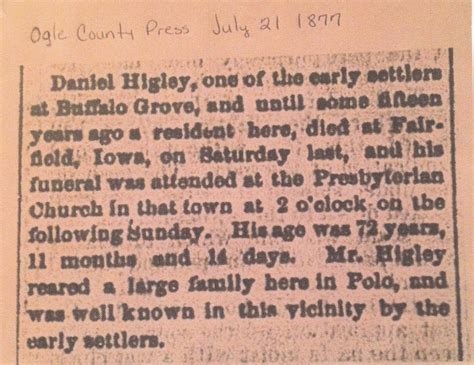 Ogle County Press July 21 1877
Daniel Higley, one of the early settlers
at Buffalo Grove, and until some fifteen
years ago a resident here, died at Fair-
field, Iowa, on Saturday last, and his
funeral was attended at the Presbyterian
Church in that town at 2 o'clock on the
following Sunday. His age was 72 years,
11 months and 14 days. Mr. Higley
reared a large family here in Polo, and
was well known in this vicinity by the
early settlers.